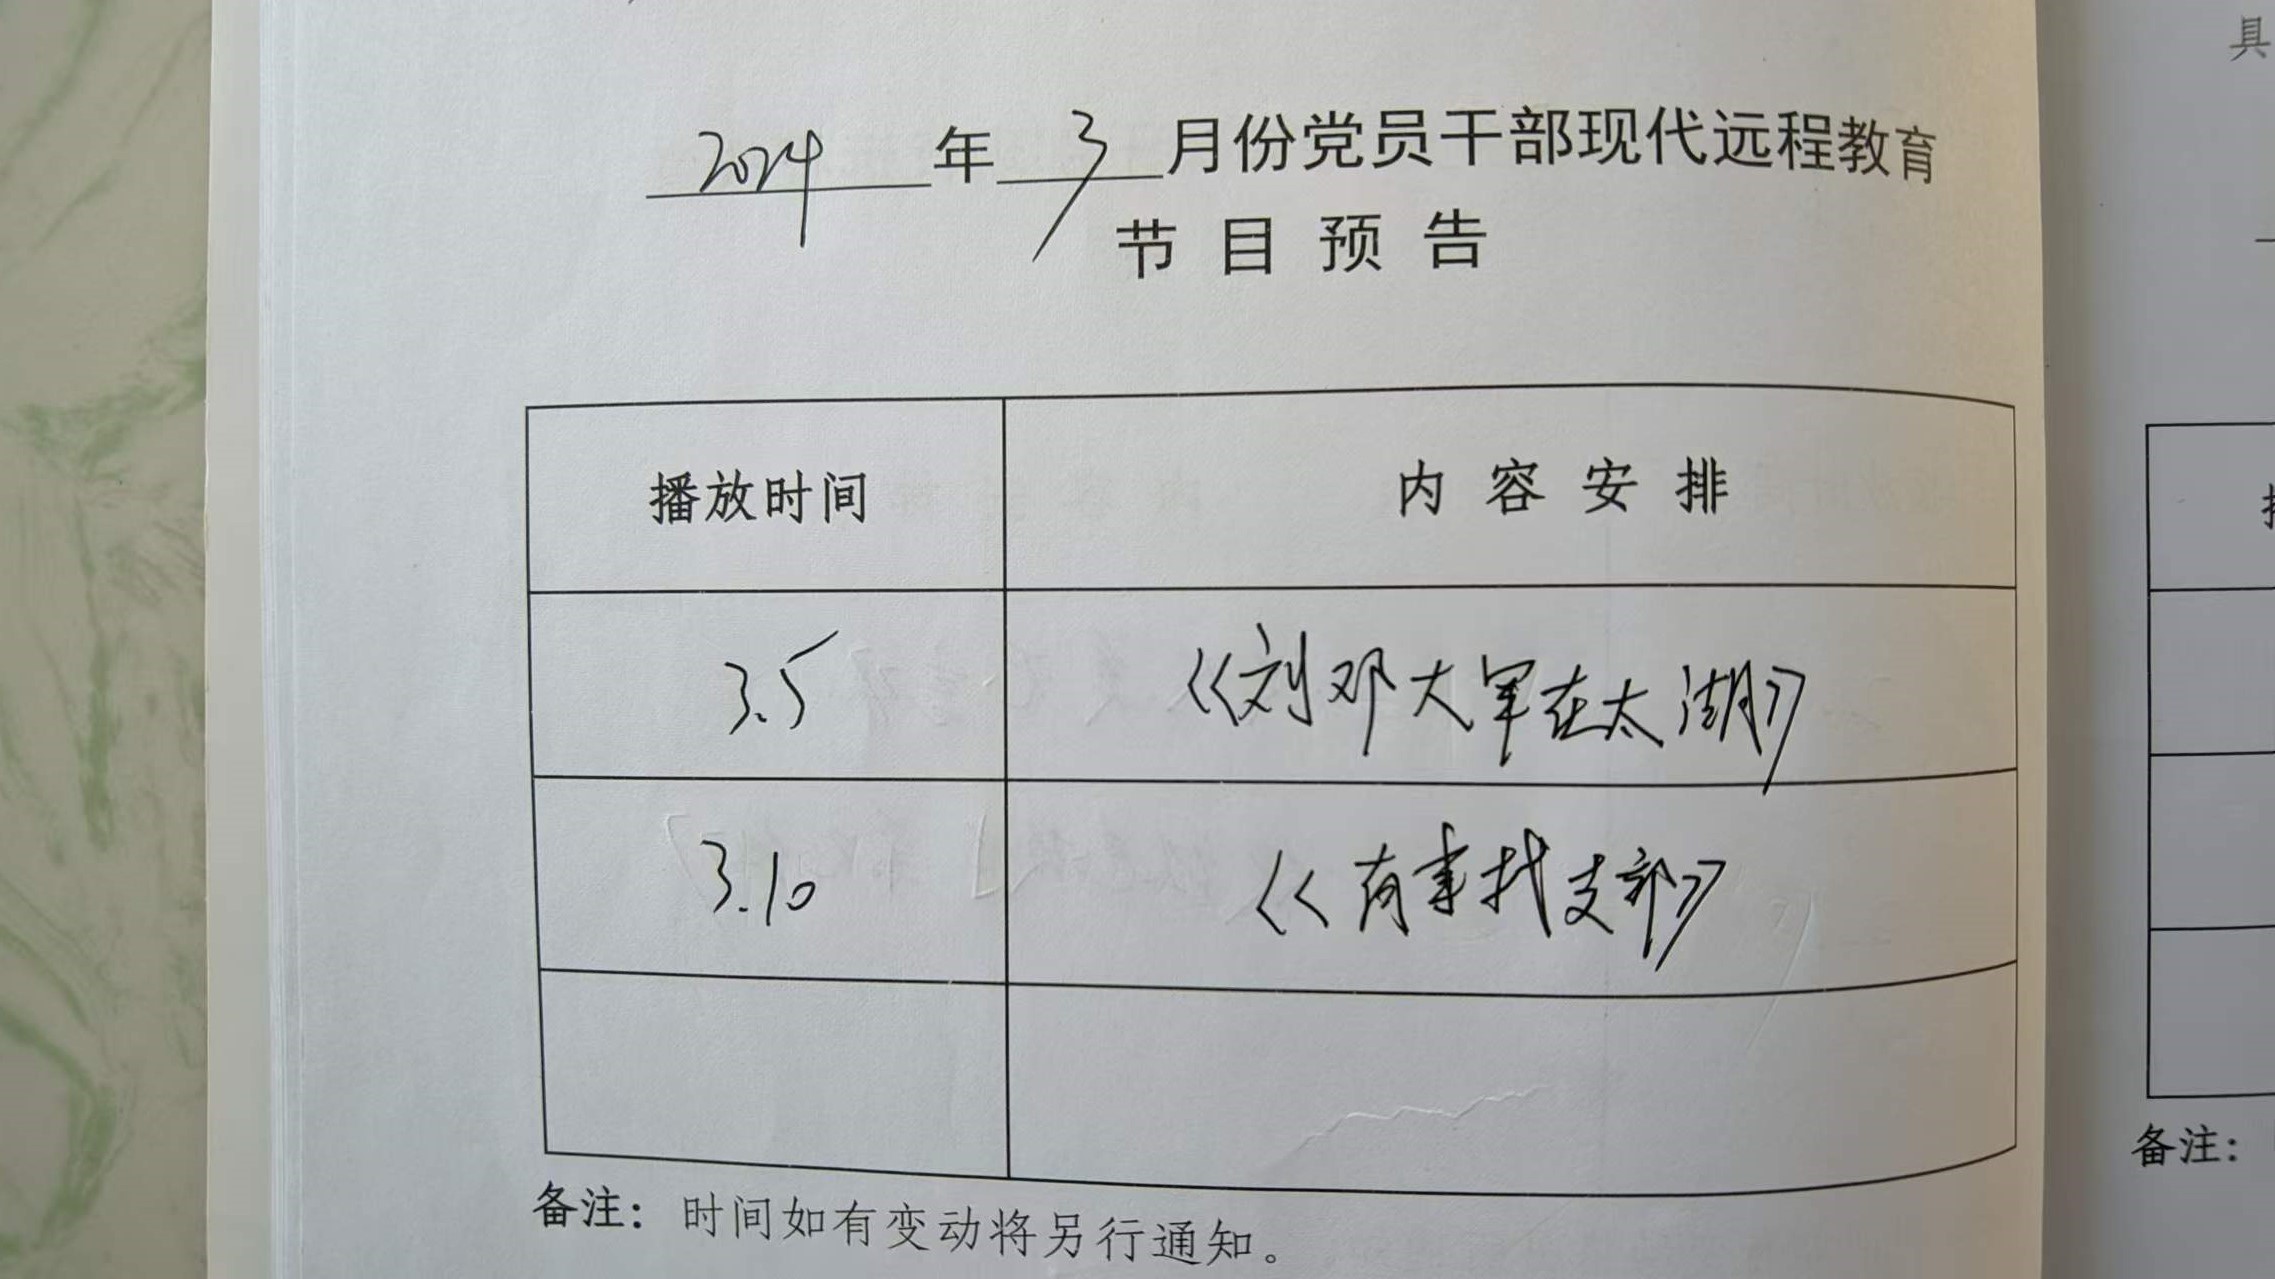 2024年3月份党员干部现代远程教育
节目预告
播放时间 内容安排
3.5 《刘邓大军在太湖》
3.10 《有事找支部》
备注：时间如有变动将另行通知。
具
备注：